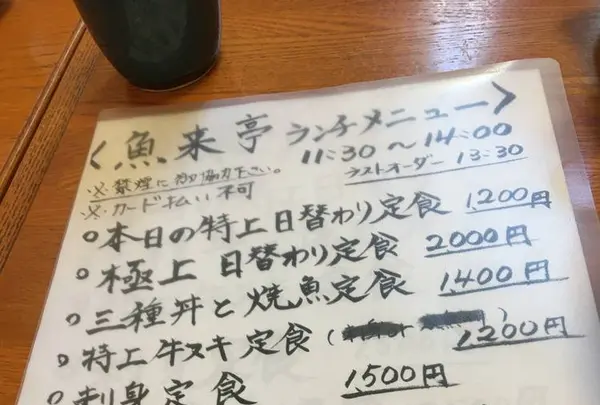 <魚来亭 ランチメニュー>
11:30〜14:00
ラストオーダー 13:30
※禁煙に御協力下さい。
※カード払い不可
○本日の特上日替わり定食 1,200円
○極上 日替わり定食 2000円
○三種丼と焼魚定食 1,400円
○特上牛ヌキ定食( ) 1,200円
○刺身定食 1,500円